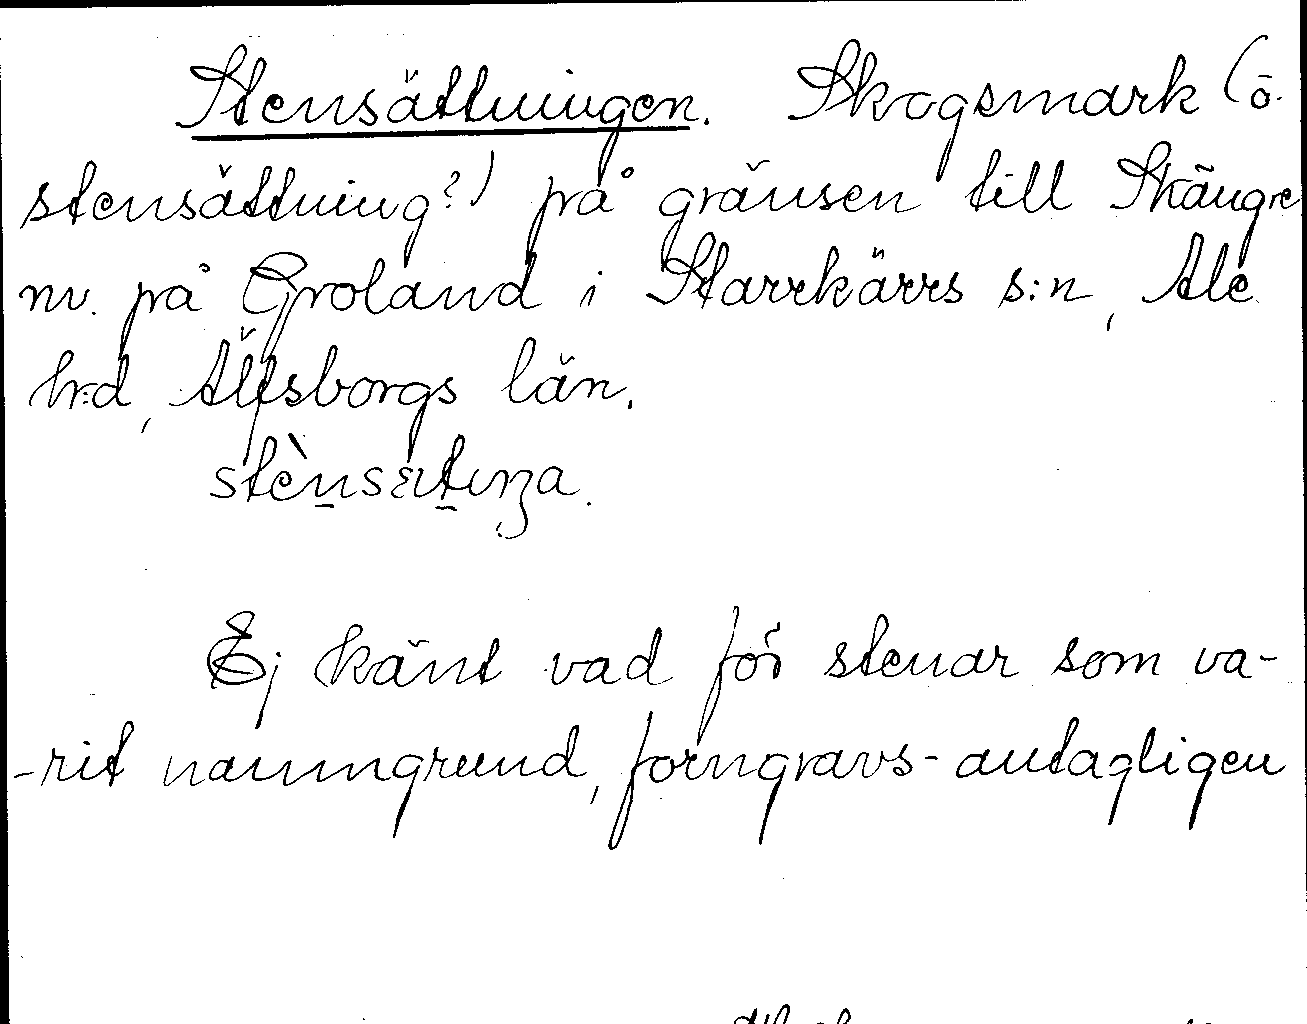 Stensättningen. Skogsmark (ö.
stensättning?) på gränsen till Skängre
nv. på Groland i Starrkärrs s:n, Ale
hd, Älfsborgs län.
stènsætıŋa.
Ej känt vad för stenar som va-
-rit namngrund, forngravs-antagligen